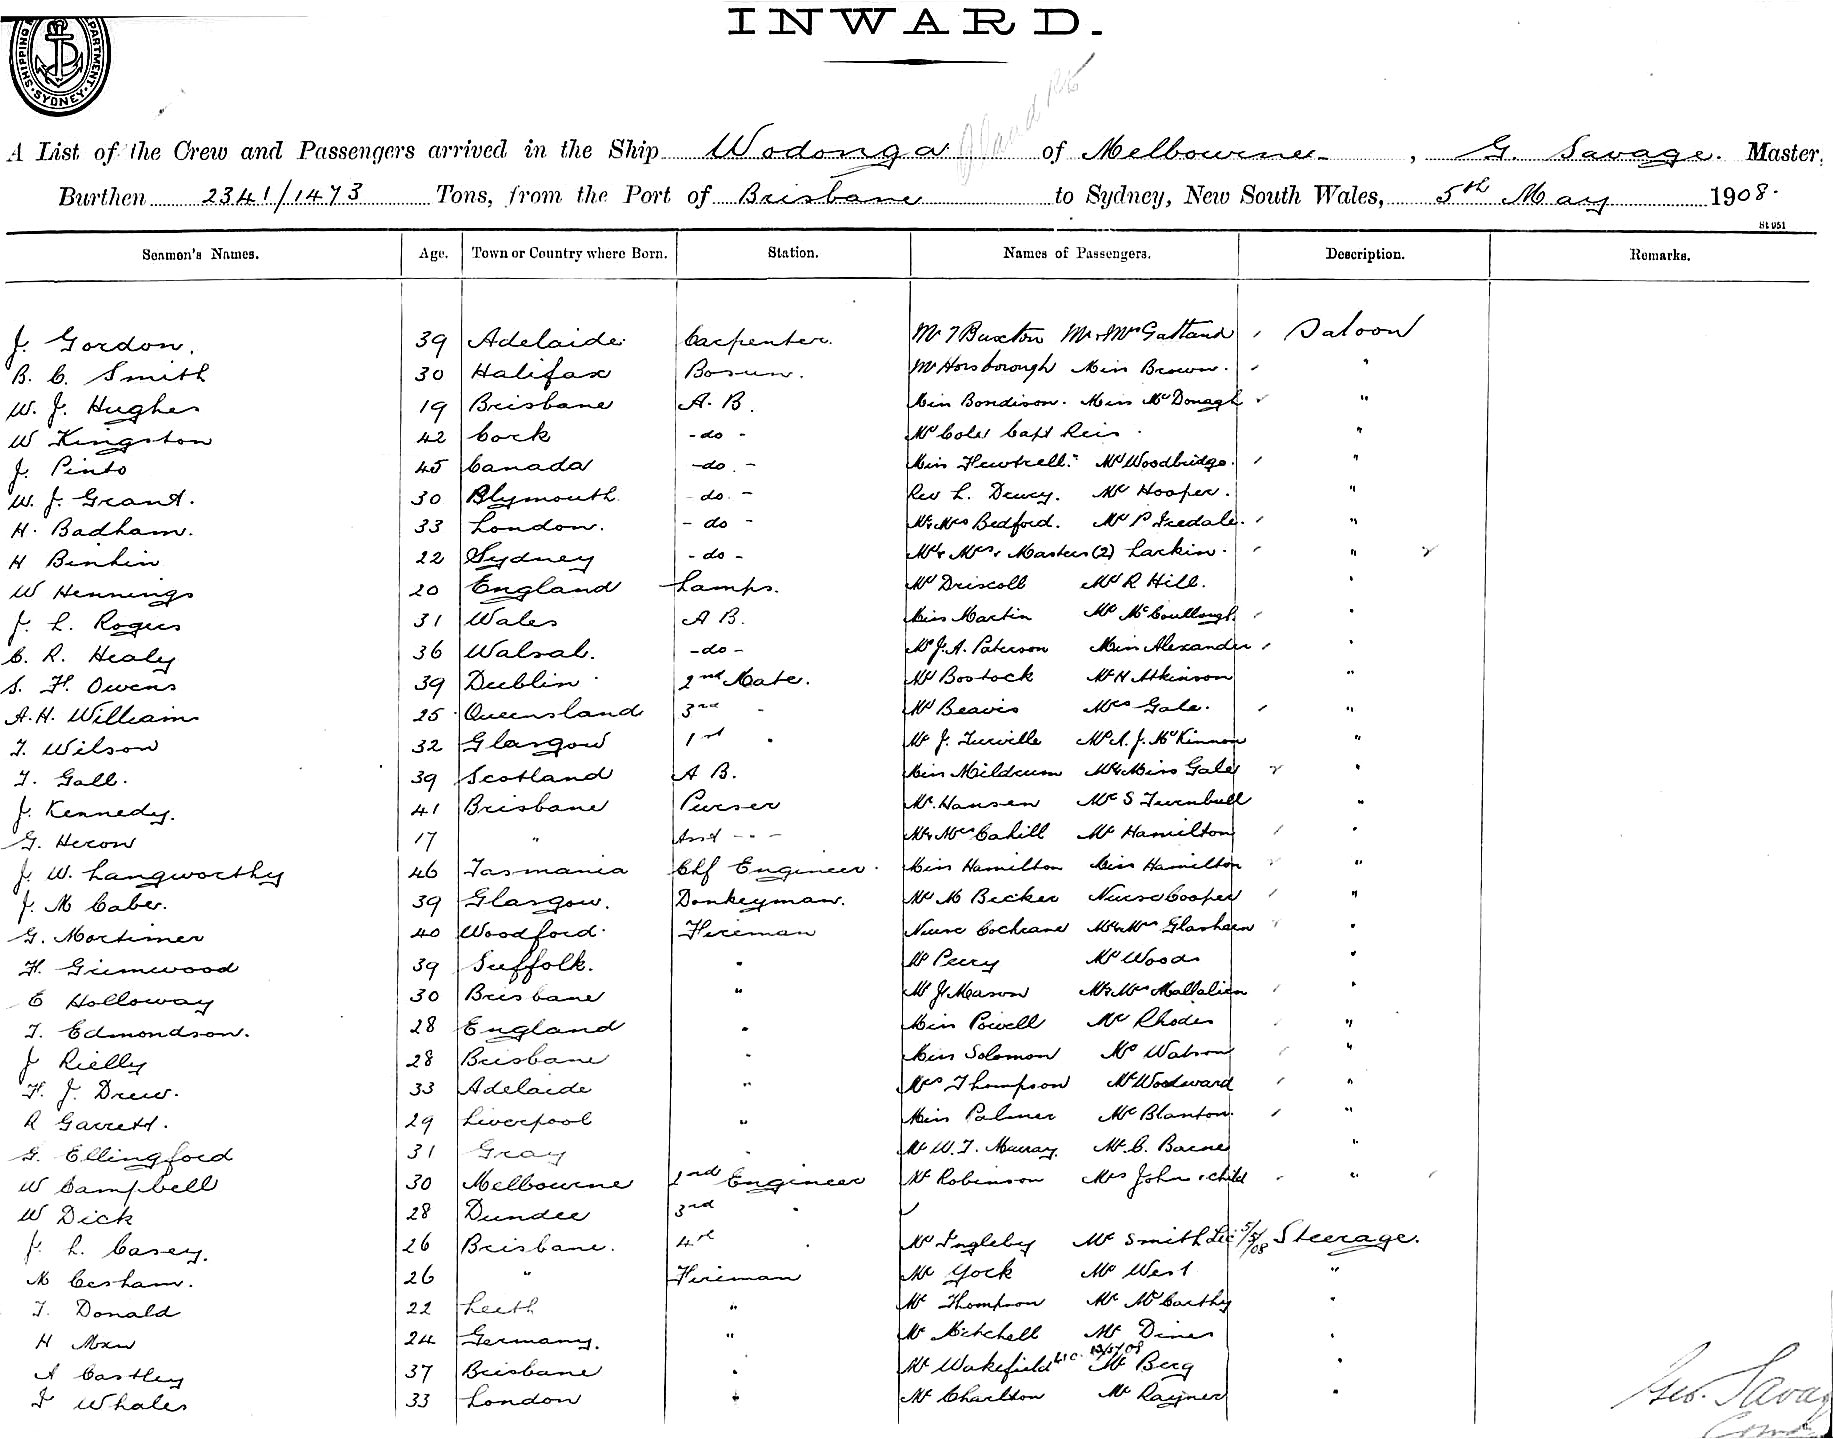 INWARD.
SHIPPING DEPARTMENT SYDNEY
A List of the Crew and Passengers arrived in the Ship Wodonga of Melbourne, G. Savage. Master,
Burthen 2341/1473 Tons, from the Port of Brisbane to Sydney, New South Wales, 5th May 1908.
St 951
Seamen's Names. Age. Town or Country where Born. Station. Names of Passengers. Description. Remarks.
J. Gordon. 39 Adelaide Carpenter. Mr T Buxton Mr & Mrs Gatland Saloon
B. C. Smith 30 Halifax Bosun. Mr Horsborough Miss Brown. "
W. J. Hughes 19 Brisbane A. B. Miss Bondison. Miss McDonagh "
W Kingston 42 Cork -do- Mr Coles Capt Reis "
J. Pinto 45 Canada -do- Miss Hewtrell Mr Woodbridge. "
W. J. Grant. 30 Plymouth -do- Rev L. Dewey. Mr Hooper. "
H. Badham. 33 London. -do- Mr & Mrs Bedford. Mr P Iredale. "
H Binkin 22 Sydney -do- Mr & Mrs & Masters (2) Larkin. "
W Hennings 20 England Lamps. Mr Driscoll Mr R Hill. "
J. L. Rogers 31 Wales A B. Miss Martin Mr McCoullough "
C. R. Healy 36 Walsal. -do- Mr J. A. Paterson Miss Alexander "
S. H. Owens 39 Dublin 2nd Mate. Mr Bostock Mr H Atkinson "
A. H. William 25 Queensland 3rd " Mr Beavis Mrs Gale. "
T. Wilson 32 Glasgow 1st " Mr J. Turville Mr A. J. McKinnon "
T. Gall. 39 Scotland A B. Miss Mildrum Mr & Miss Gale "
J. Kennedy. 41 Brisbane Purser Mr. Hansen Mr S Turnbull "
G. Heron 17 " Asst " Mr & Mrs Cahill Mr Hamilton "
J. W. Langworthy 46 Tasmania Chf Engineer. Miss Hamilton Miss Hamilton "
J. M Caber. 39 Glasgow. Donkeyman. Mr M Becker Nurse Cooper "
G. Mortimer 40 Woodford. Fireman Nurse Cochrane Mr & Mrs Glasheen "
H. Grimwood 39 Suffolk. " Mr Perry Mr Woods "
E Holloway 30 Brisbane " Mr J. Mason Mr & Mrs Mallalieu "
T. Edmondson. 28 England " Miss Powell Mr Rhodes "
J Rielly 28 Brisbane " Miss Solomon Mr Watson "
H. J. Drew. 33 Adelaide " Mrs Thompson Mr Woodward "
R Garrett. 29 Liverpool " Miss Palmer Mr Blanton. "
G. Ellingford 31 Gray " Mr W. T. Murray. Mr. C. Barne "
W Campbell 30 Melbourne 2nd Engineer Mr Robinson Mrs John & child "
W Dick 28 Dundee 3rd "
J. L. Casey. 26 Brisbane. 4th " Mr Ingleby Mr Smith Lic 5/5/08 Steerage.
M Cesham. 26 " Fireman Mr York Mr West "
T. Donald 22 Leith " Mr Thompson Mr McCarthy "
H 24 Germany. " Mr Mitchell Mr Dines "
A Castley 37 Brisbane " Mr Wakefield Lic. Mr Berg "
J Whales 33 London " Mr Charlton Mr Rayner "
Geo. Savage